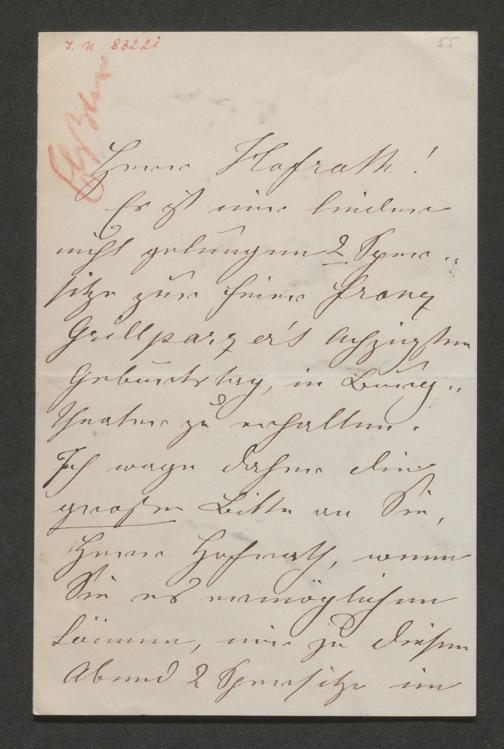 I. N. 83221
55
Herr Hofrath!
Es ist mir leider
nicht gelungen 2 Sper„
sitze zur Feier Franz
Grillparzer's achtzigsten
Geburtstag, in Burg„
theater zu erhalten.
Ich wage daher die
großen Bitte an Sie,
Herr Hofrath, wenn
Sie es ermöglichen
können, mir zu diesem
Abend 2 Spersitze im